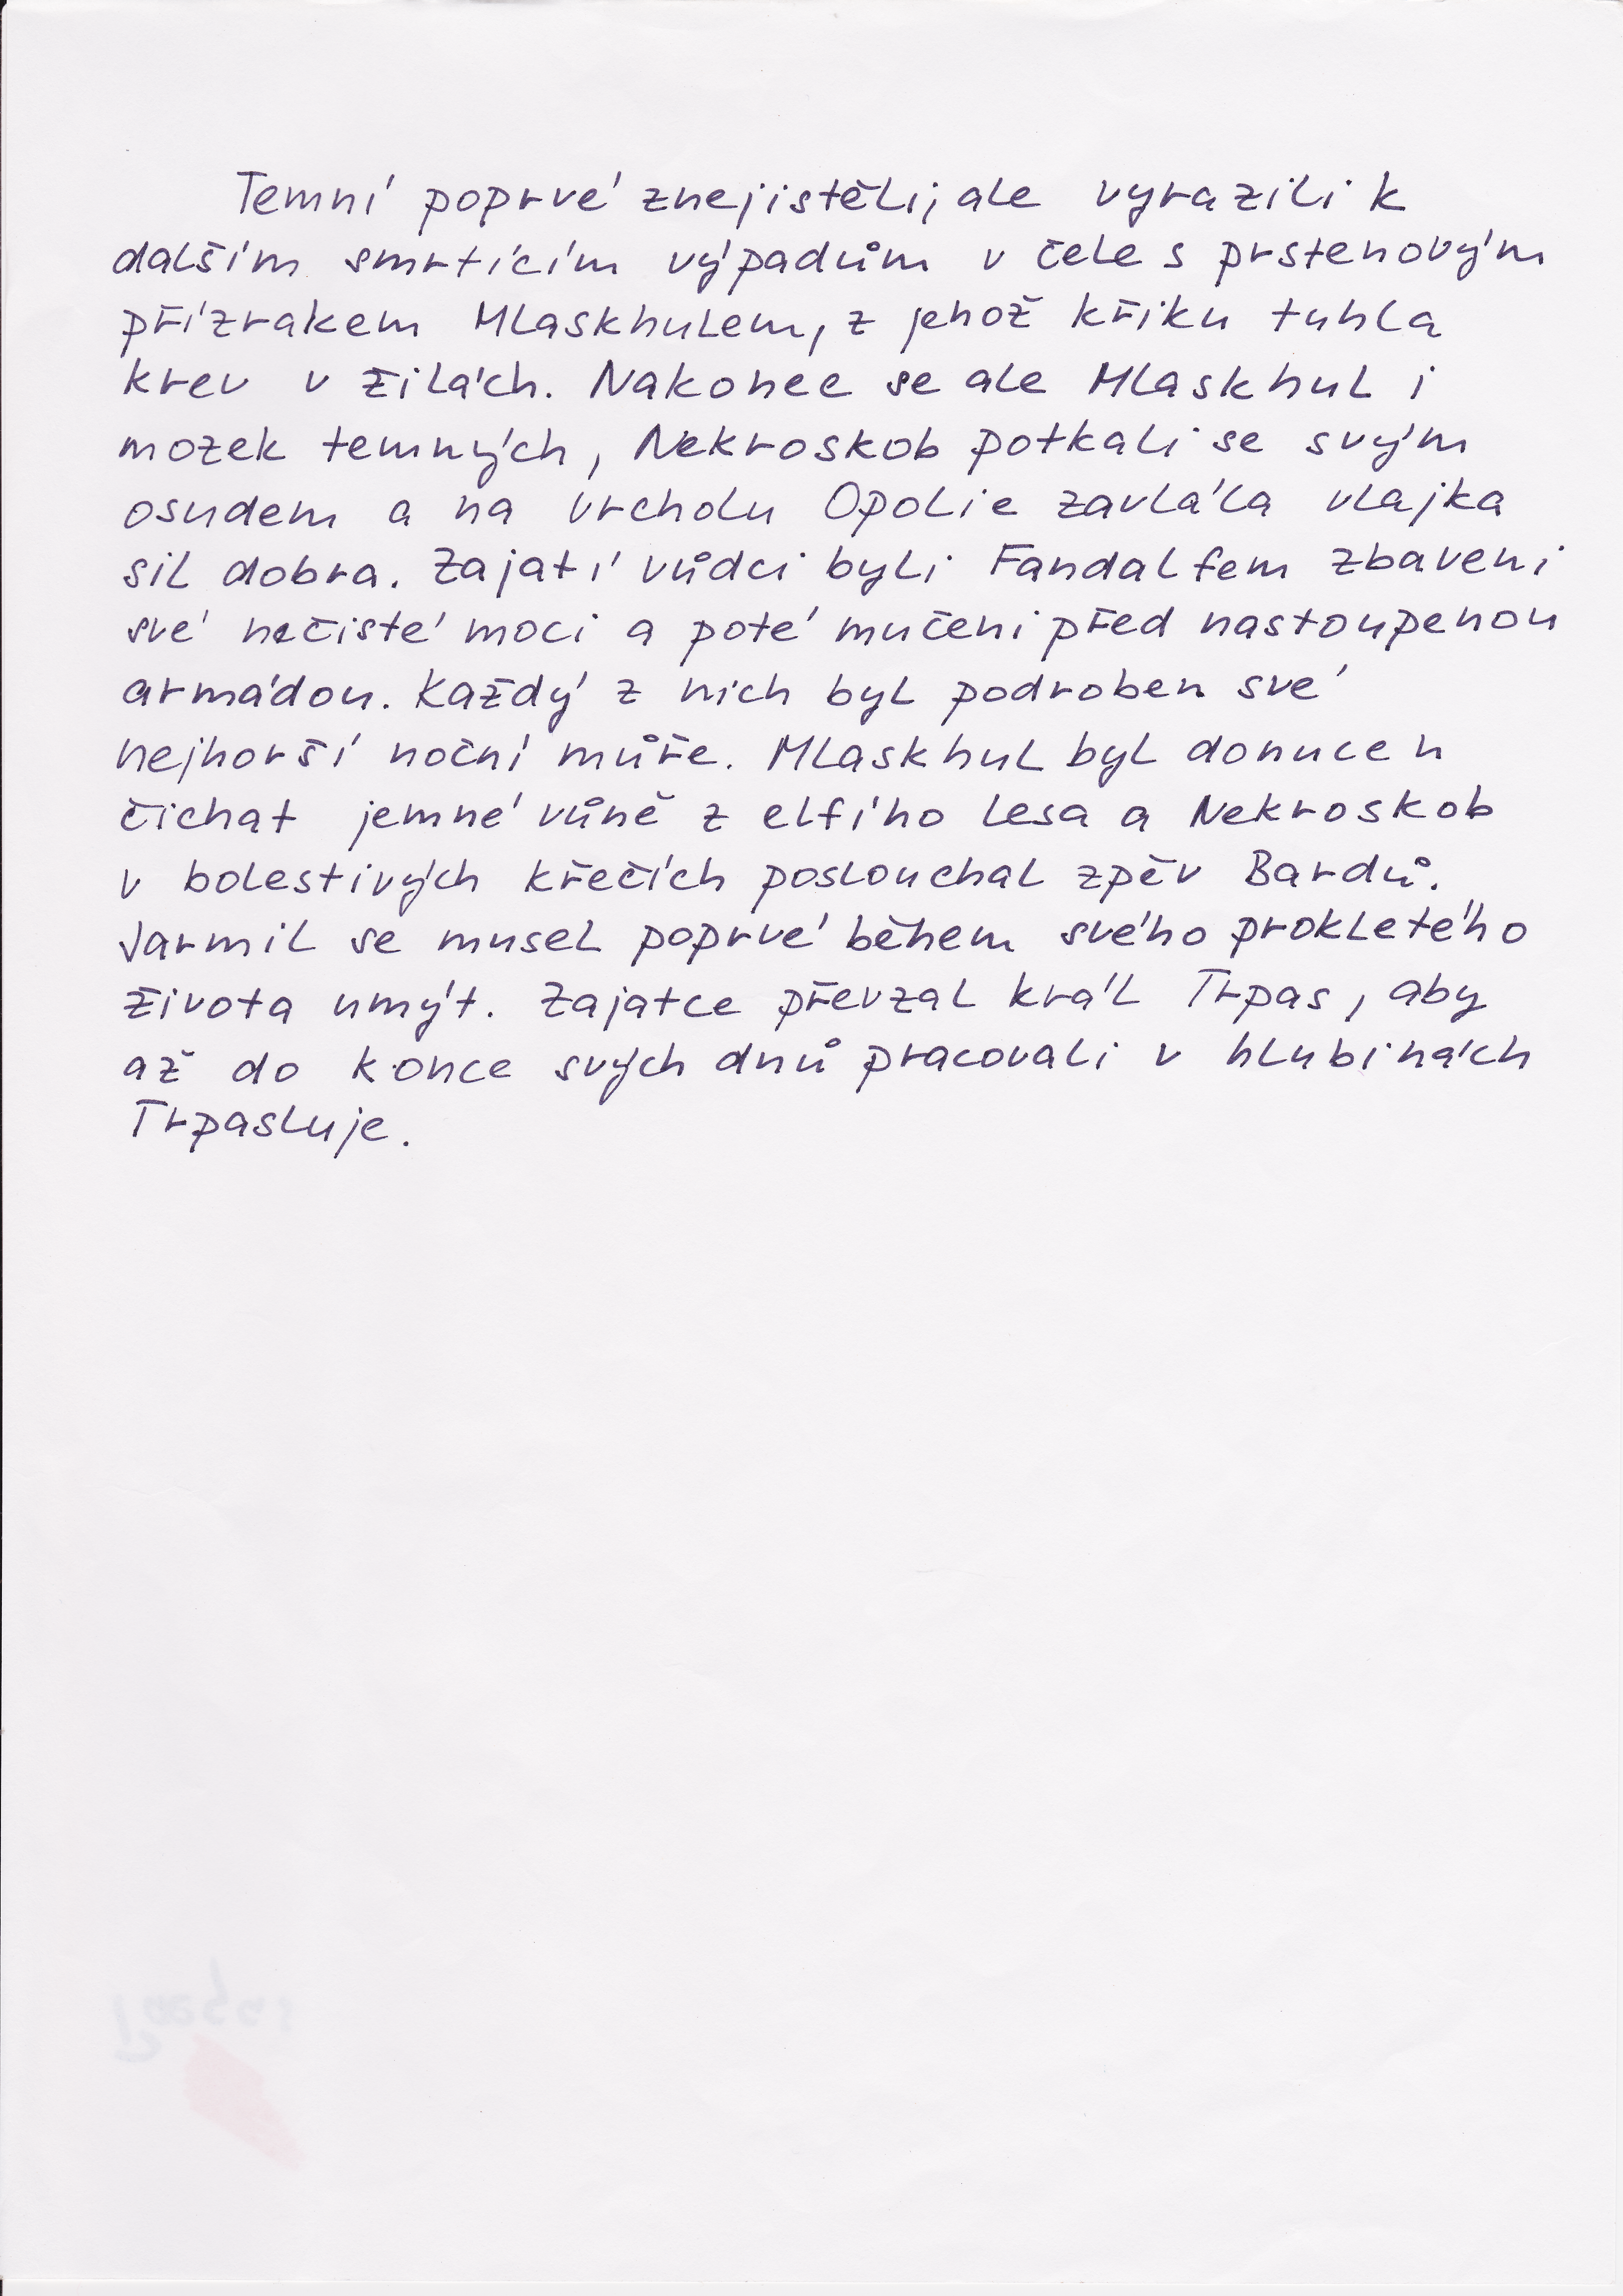 Temní poprvé znejistěli, ale vyrazili k
dalším smrtícím výpadům v čele s prstenovým
přízrakem Mlaskhulem, z jehož křiku tuhla
krev v žilách. Nakonec se ale Mlaskhul i
mozek temných, Nekroskob potkali se svým
osudem a na vrcholu Opolie zavlála vlajka
sil dobra. Zajatí vůdci byli Fandalfem zbaveni
své nečisté moci a poté mučeni před nastoupenou
armádou. Každý z nich byl podroben své
nejhorší noční můře. Mlaskhul byl donucen
čichat jemné vůně z elfího lesa a Nekroskob
v bolestivých křečích poslouchal zpěv Bardů.
Jarmil se musel poprvé během svého prokletého
života umýt. Zajatce převzal král Trpas, aby
až do konce svých dnů pracovali v hlubinách
Trpasluje.